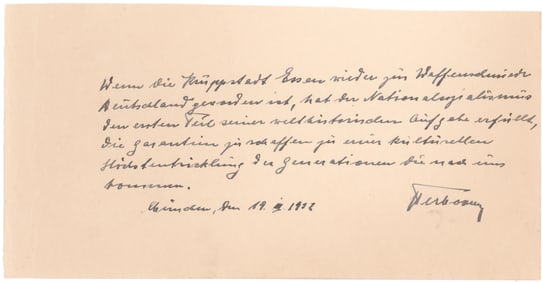 Wenn die Kruppstadt Essen wieder zur Waffenschmiede
Deutschland geworden ist, hat der Nationalsozialismus
den ersten Teil seiner welthistorischen Aufgabe erfüllt,
die Garantien zu schaffen zu einer kulturellen
Höchstentwicklung der Generationen die nach uns
kommen.
München, den 19. 1932
Terboven